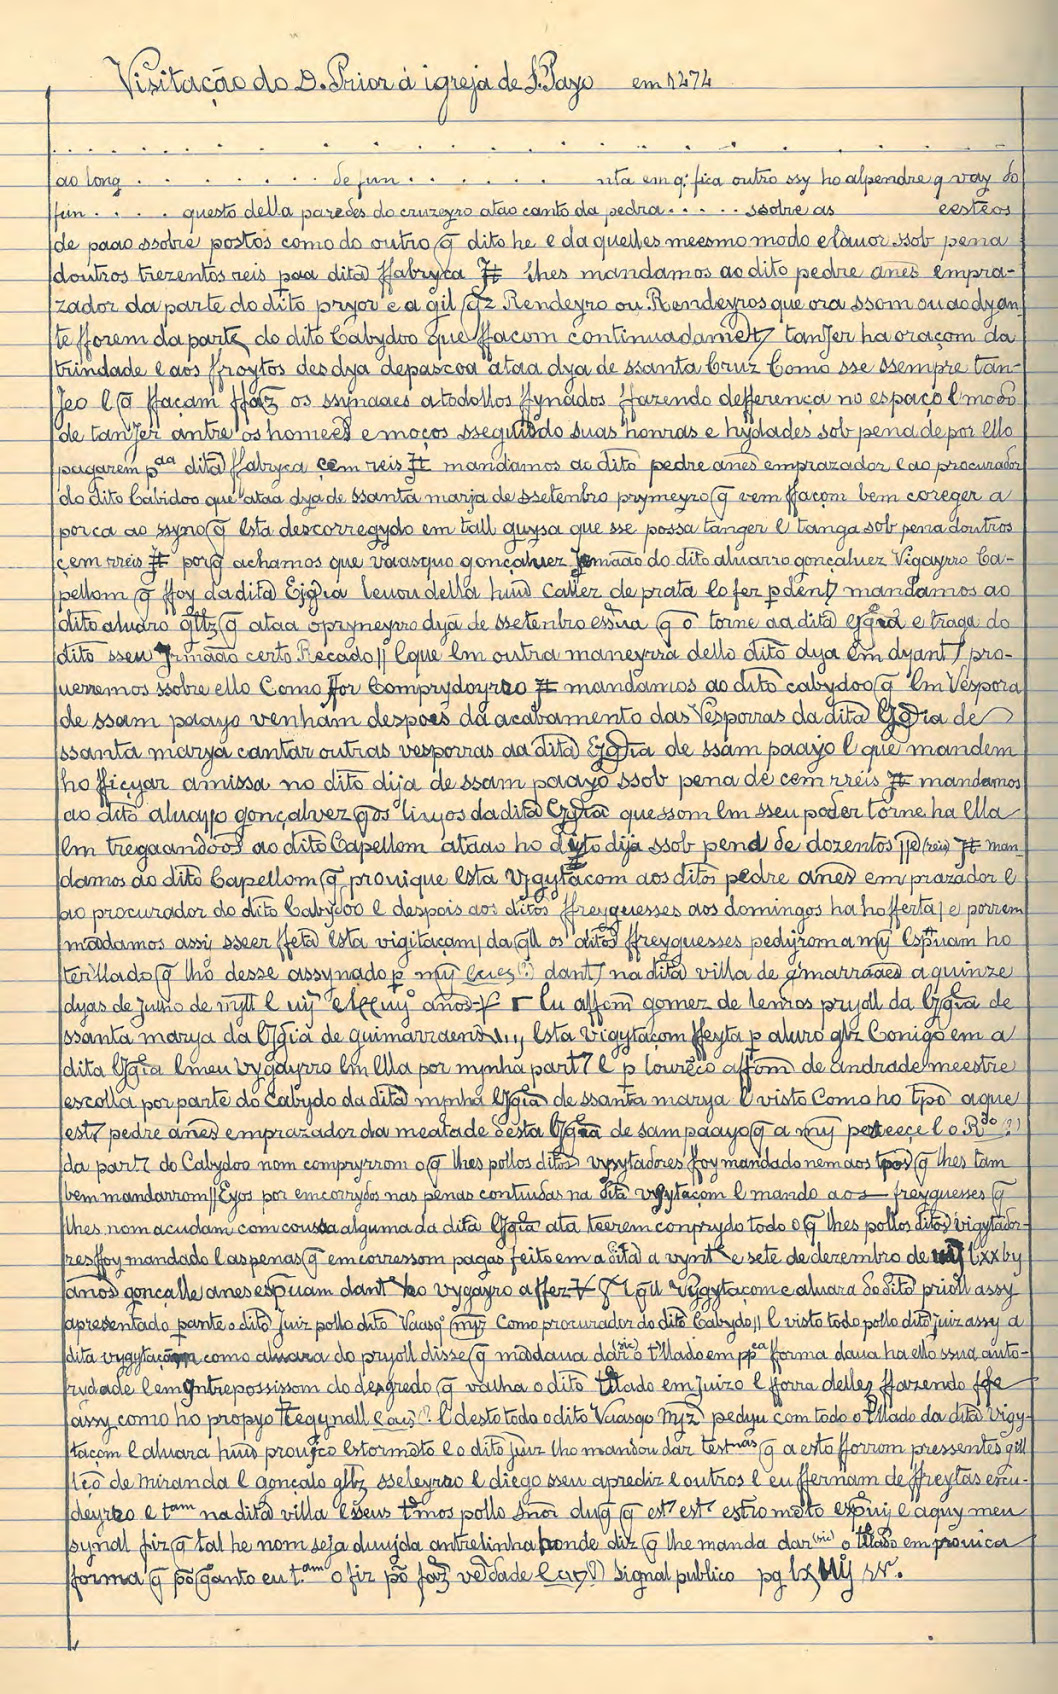 Visitação do D. Prior à igreja de S. Payo em 1474
ao long . . . . . . . . de fun . . . . . . . nta em q. fica outro ssy ho alpendre q vay do
fun . . . . questo della paredes do cruzeyro atao canto da pedra . . . . . ssobre as eesteos
de paao ssobre postos como do outro q̃ dito he e da quelles meesmo modo e lauor ssob pena
doutros trezentos reis paa dita ffabryca Jt lhes mandamos ao dito pedre anes empra-
zador da parte do dito pryor e a gil glz Rendeyro ou Rendeyros que ora ssom ou ao dyan
te fforem da parte do dito Cabydoo que ffacom continuadamet tanJer ha oraçom da
trindade e aos ffroytos des dya depascoa ataa dya de ssanta Cruz Como sse ssempre tan-
Jeo e q̃ ffaçam ffaz os ssynaaes a todollos ffynados ffazendo defferença no espaço e modo
de tanJer antre os homees e moços sseguindo suas honras e hydades sob pena de por ello
pagarem paa dita ffabryca çem reis Jt mandamos ao dito pedre anes emprazador e ao procurador
do dito Cabidoo que ataa dya de ssanta marja de ssetenbro prymeyro q̃ vem ffaçom bem coreger a
porca ao ssyno q̃ esta descorregydo em tall guysa que sse possa tanger e tanga sob pena doutros
çem rreis Jt porq̃ achamos que vaasquo gonçaluez Jrmaão do dito aluarro gonçaluez Vigayrro Ca-
pellom q̃ ffoy da dita Ejgria leuou della huũ Callez de prata e o fez pdent mandamos ao
dito aluaro gllz q̃ ataa o prymeyro dya de ssetenbro q̃ o torne aa dita egria e traga do
dito sseu Jrmaão certo Recado || e que em outra maneyrra dello dito dya em dyant / pro-
uerremos ssobre ello Como ffor Comprydoyrro Jt mandamos ao dito cabydoo q̃ em Vespora
de ssam paayo venham despoes da acabamento das Vesporras da dita Egria de
ssanta marya cantar outras vesporras aa dita Egria de ssam paayo e que mandem
ho ffiçyar a missa no dito dija de ssam paayo ssob pena de cem rreis Jt mandamos
ao dito aluaro gonçalvez q̃ os liuyos da dita Egria que ssom em sseu poder torne ha ella
em tregaandoos ao dito Capellom ataao ho dyto dija ssob pena de dozentos rr (reis) Jt man-
damos ao dito Capellom q̃ provique esta vygytaçom aos ditos pedre anes em prazador e
ao procurador do dito Cabydoo e despois aos ditos ffreyguesses aos domingos ha hofferta / e porrem
mãdamos assy sseer ffeta esta vigitaçam / da qll os ditos ffreyguesses pedyrom a my espriuam ho
terllado q̃ lho desse assynado p my (?) dant / na dita villa de gmarraaes a quinze
dyas de Julho de myll e iiij e lxx iiij anos eu affom gomez de lemos pryoll da Egria de
ssanta marya da Egria de guimarraens esta vigytaçom ffeyta p aluro glz Conigo em a
dita Egria e meu vygayrro em ella por mynha part e p lourẽco affom de andrade meestre
escolla por parte do cabydo da dita mynha egria de ssanta marya e visto Como ho tpo aque
est pedre anes emprazador da meatade desta Egria de sam paayo q̃ a my perteeçe e o Rdo (?)
da part do Cabydoo nom compryrrom o q̃ lhes pollos ditos vysytadores foy mandado nem aos tpos q̃ lhes tam
bem mandarrom || Eyos por emcorrydos nas penas contiudas na dita vygytaçom e mando aos freyguesses q̃
lhes nom acudam com coussa alguma da dita Egria ata teerem conprydo todo o q̃ lhes pollos ditos vigytador-
res ffoy mandado e as penas q̃ em corressom pagas feito em a dita a vynt e sete de dezembro de iiij lxx by
anos gonçalle anes espriuam dant ho vygayro a ffez e q̃ll Vygytaçom e aluara do dito prioll assy
apresentado pante o dito Juiz pollo dito Vaasq mrz Como procurador do dito Cabydo || e visto todo pollo dito Juiz assy a
dita vygytaçam como aluara do pryoll disse q̃ mãdaua dar (sic) o tllado em ppca forma daua ha ello ssua auto-
rydade e em antrepossissom do degredo q̃ valha o dito tllado em Juizo e forra delles ffazendo ffe
assy como ho propyo Regynall (?) e desto todo o dito Vaasqo Mrz pedyu com todo o tllado da dita vigy-
taçom e aluara huũ prouico estormẽto e o dito Juiz lho mandou dar testnas q̃ a esto fforrom pressentes gill
lço de miranda e gonçalo glz sseleyrro e diego sseu aprediz e outros e eu ffernam de ffreytas escu-
deyrro e tam na dita villa e sseus tmos pollo Snor duq q̃ est est estromẽto espuij e aquy meu
synal fiz q̃ tal he nom seja duujda antrelinha honde diz q̃ lhe manda dar (sic) o tllado em prouica
forma q̃ eu tam o fiz verdade (?) Signal publico pg lx